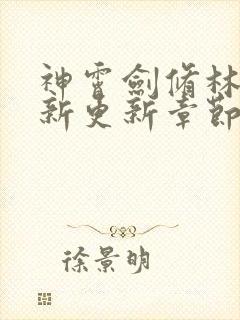 神霄劍脩林
新更新章節
徐景明